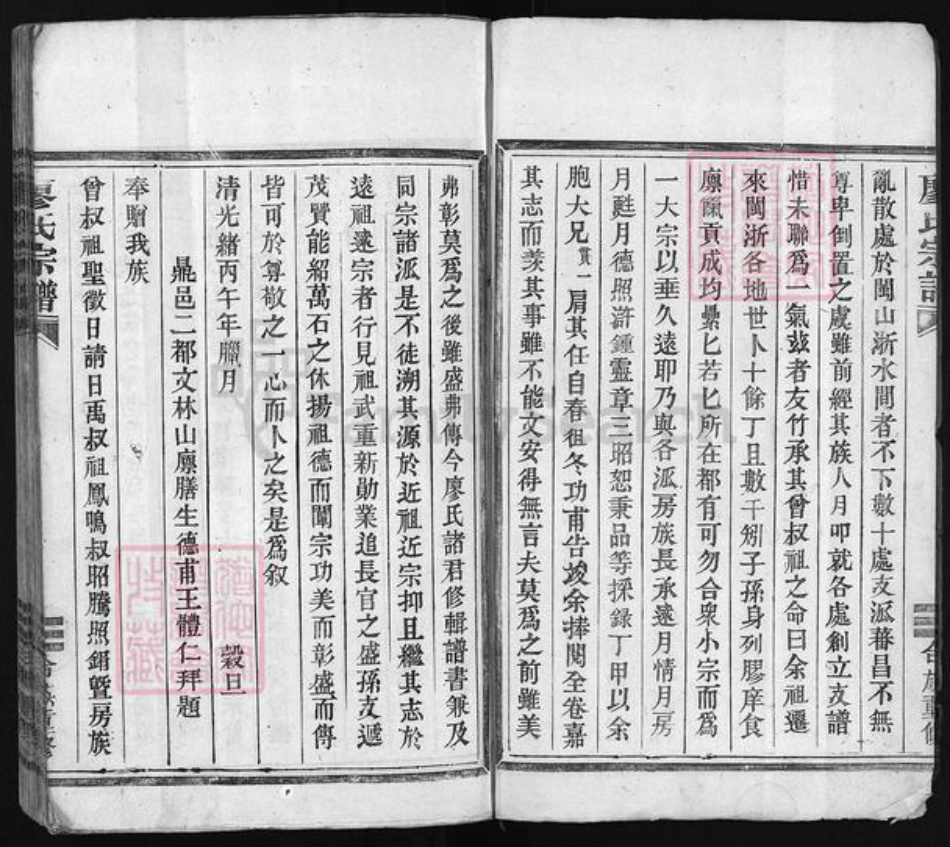 廖氏宗譜
亂散處於閩山浙水間者不下數十處支派蕃昌不無
尊卑倒置之虞雖前經其族人月叩就各處創立支譜
惜未聯為一氣茲者友竹承其曾叔祖之命曰余祖遷
來閩浙各地世卜十餘丁且數千矧子孫身列膠庠食
廩餼貢成均纍匕若匕所在都有可勿合衆小宗而為
一大宗以垂久遠耶乃與各派房族長承遠月情月房
月甦月德照滸鍾靈章三昭恕秉品等採錄丁甲以余
胞大兄貫一肩其任自春徂冬功甫告竣余捧閱全卷嘉
其志而羨其事雖不能文安得無言夫莫為之前雖美
弗彰莫為之後雖盛弗傳今廖氏諸君修輯譜書兼及
同宗諸派是不徒溯其源於近祖近宗抑且繼其志於
遠祖遠宗者行見祖武重新勛業追長官之盛孫支遞
茂賢能紹萬石之休揚祖德而闡宗功美而彰盛而傳
皆可於尊敬之一心而卜之矣是為叙
清光緒丙午年臘月 穀旦
鼎邑二都文林山廩膳生德甫王體仁拜題
奉贈我族
曾叔祖聖徵日請日禹叔祖鳳鳴叔昭騰照錯暨房族
廖氏宗譜
FamilySearch